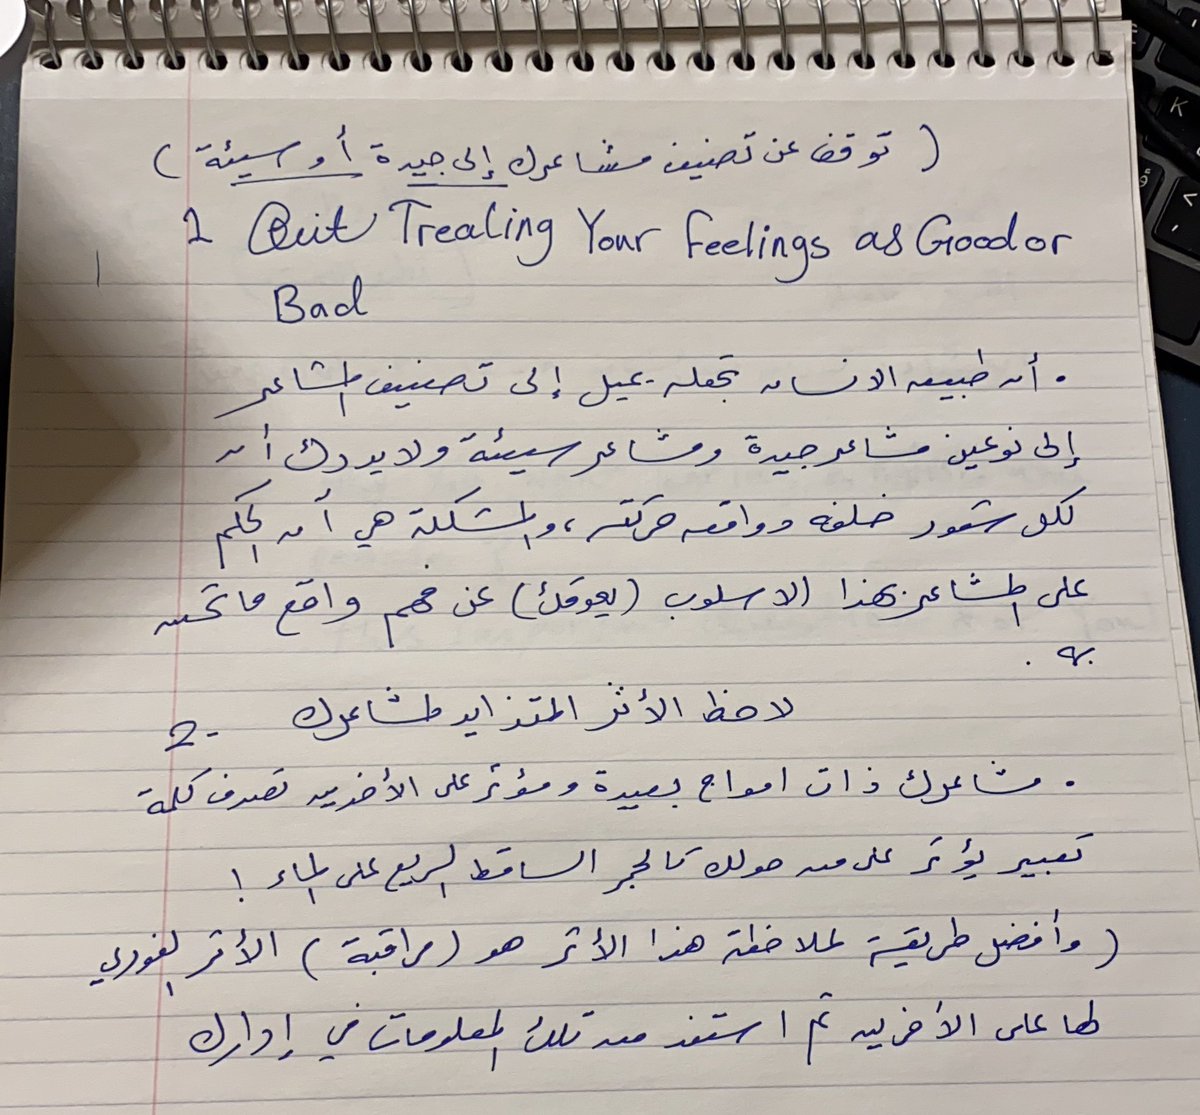 ( توقف عن تصنيف مشاعرك إلى جيدة أو سيئة )
1 Quit Treating Your Feelings as Good or
Bad
. أن طبيعه الانسان تجعله يميل إلى تصنيف المشاعر
إلى نوعين مشاعر جيدة ومشاعر سيئة ولا يدرك أن
لكل شعور خلفه دوافعه ، والمشكلة هي أن الحكم
على المشاعر بهذا الاسلوب (يعوقك) عن فهم واقع ما تحس
به .
2- لاحظ الأثر المتزايد لمشاعرك
. مشاعرك ذات امواج بعيدة ومؤثر على الأخرين تصرف كلمة
تعبير يؤثر على من حولك كالحجر الساقط السريع على الماء !
( وأفضل طريقة لملاحظة هذا الأثر هو (مراقبة) الأثر الفوري
لها على الأخرين ثم استفد من تلك المعلومات في إدارك